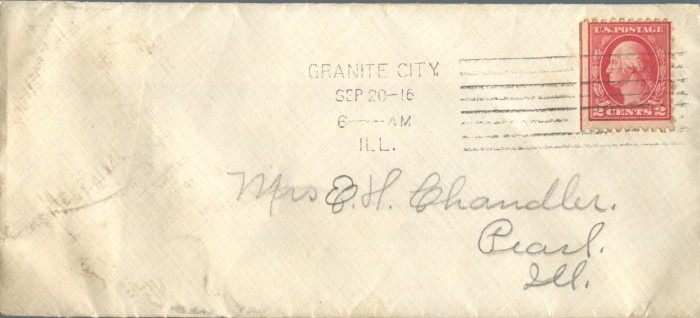 GRANITE CITY.
SEP 20-16
6----AM
ILL.
U.S. POSTAGE
2 CENTS 2
Mrs E. H. Chandler.
Pearl.
Ill.